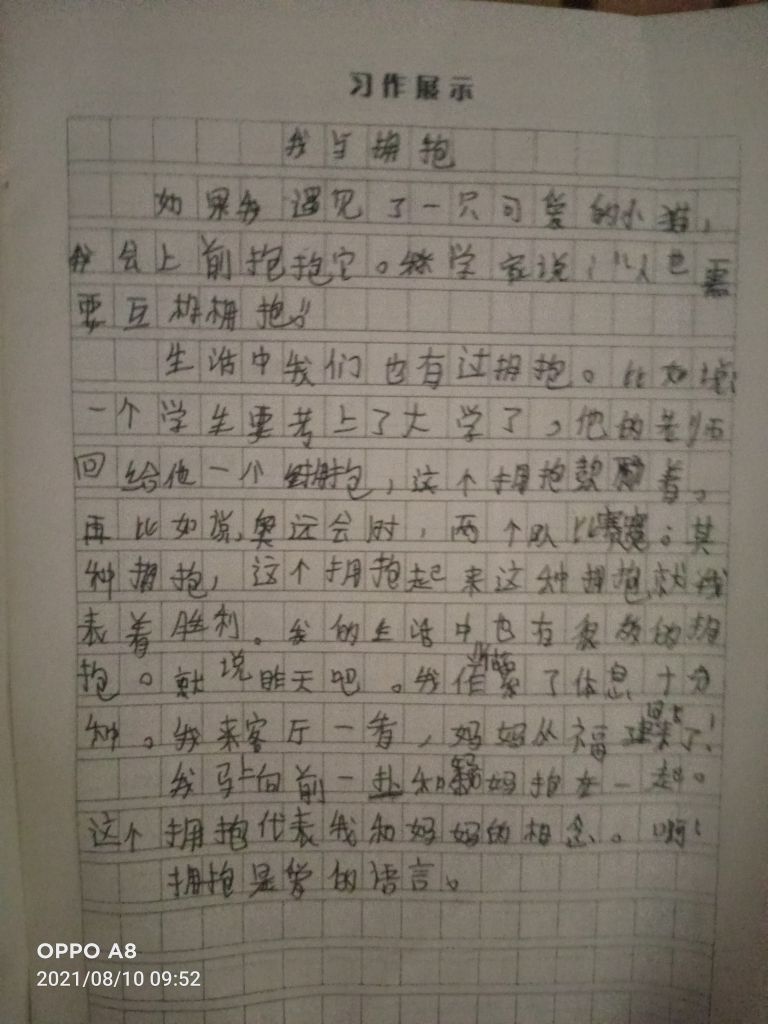 习作展示
我与拥抱
如果我遇见了一只可爱的小猫，
我会上前抱抱它。科学家说：“人也需
要互相拥抱。”
生活中我们也有过拥抱。比如说
一个学生要考上了大学了，他的老师
回给他一个拥抱，这个拥抱鼓励着。
再比如说，奥运会时，两个队比赛，其
种拥抱，这个拥抱起来这种拥抱就代
表着胜利。我的生活中也有很多的拥
抱。就说昨天吧。我作业写累了休息十分
种。我来客厅一看，妈妈从福建回来了！
我马上向前一扑和妈妈抱在一起。
这个拥抱代表我和妈妈的相念。啊！
拥抱是爱的语言。
OPPO A8
2021/08/10 09:52